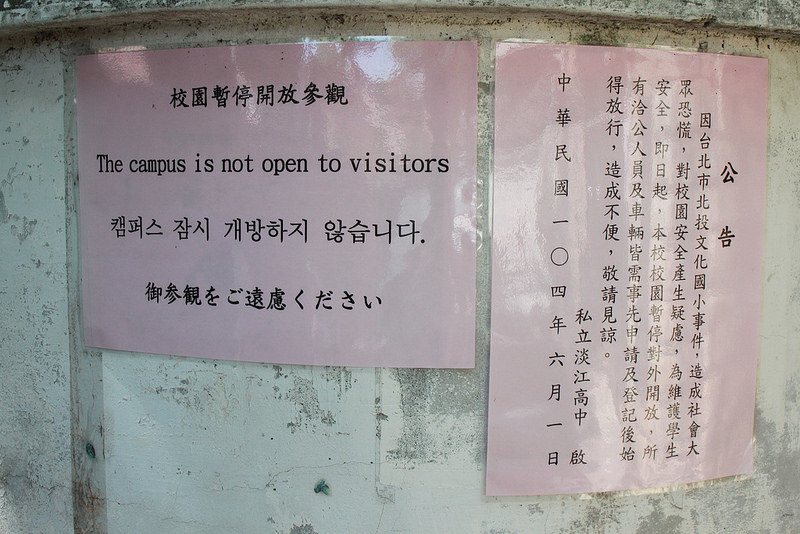 校園暫停開放參觀
The campus is not open to visitors
캠퍼스 잠시 개방하지 않습니다.
御参観をご遠慮ください
公告
因台北市北投文化國小事件，造成社會大
眾恐慌，對校園安全產生疑慮，為維護學生
安全，即日起，本校校園暫停對外開放，所
有洽公人員及車輛皆需事先申請及登記後始
得放行，造成不便，敬請見諒。
私立淡江高中 啟
中華民國一〇四年六月一日